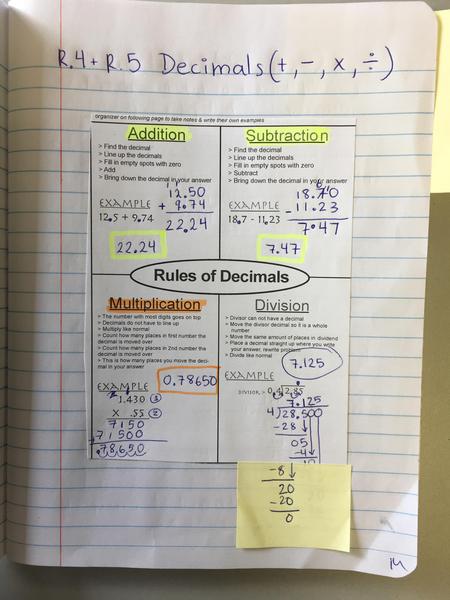 R.4 + R.5 Decimals (+, -, x, ÷)
organizer on following page to take notes & write their own examples
Addition
> Find the decimal
> Line up the decimals
> Fill in empty spots with zero
> Add
> Bring down the decimal in your answer
EXAMPLE
12.5 + 9.74
12.50
+ 9.74
22.24
22.24
Subtraction
> Find the decimal
> Line up the decimals
> Fill in empty spots with zero
> Subtract
> Bring down the decimal in your answer
EXAMPLE
18.7 - 11.23
18.70
- 11.23
7.47
7.47
Rules of Decimals
Multiplication
> The number with most digits goes on top
> Decimals do not have to line up
> Multiply like normal
> Count how many places in first number the
decimal is moved over
> Count how many places in 2nd number the
decimal is moved over
> This is how many places you move the deci-
mal in your answer
EXAMPLE
0.78650
1.430 ③
x .55 ②
7150
+ 71500
.78650
Division
> Divisor can not have a decimal
> Move the divisor decimal so it is a whole
number
> Move the same amount of places in dividend
> Place a decimal straight up where you write
your answer, rewrite problem
> Divide like normal
7.125
EXAMPLE
DIVISOR > 0.4 2.85
7.125
4 28.500
-28
05
-4
10
-8
20
-20
0